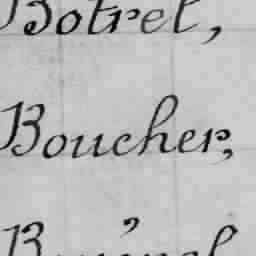 Botrel,
Boucher,